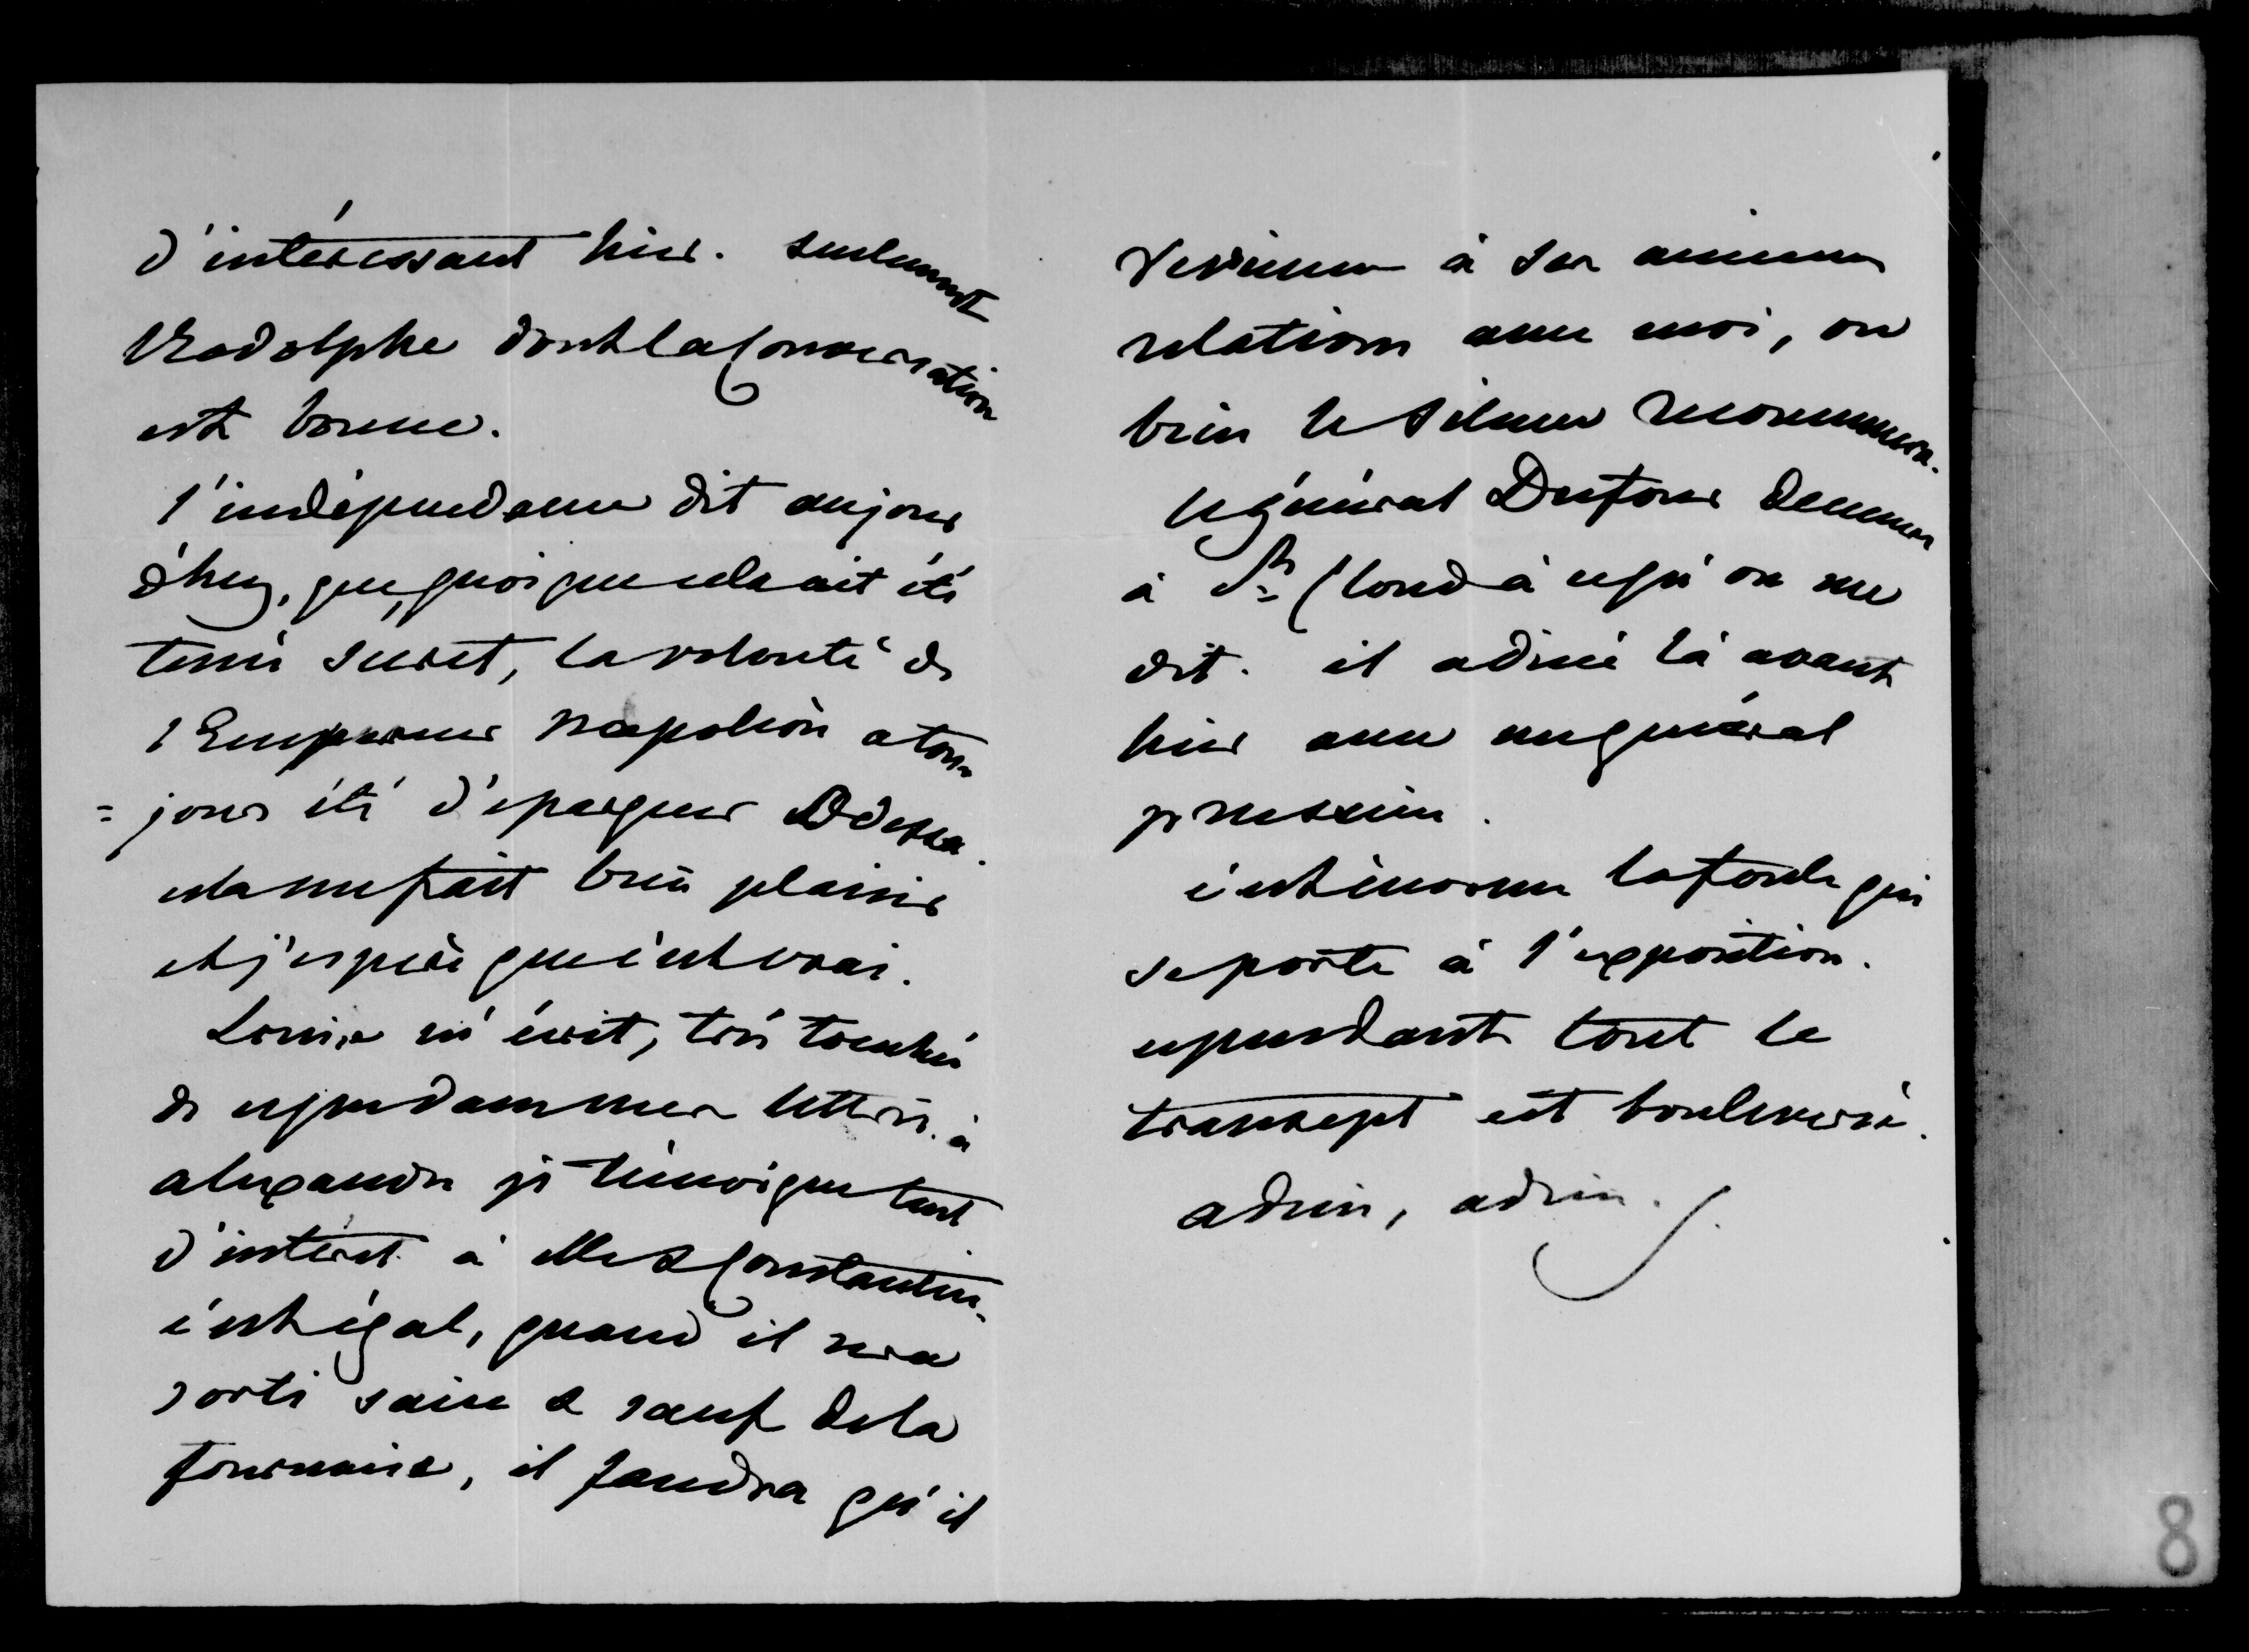 d'intéressant hier. seulement
Rodolphe dont la Conversation
est bonne.
l'indépendance dit aujour
d'huy, que, quoique cela ait été
tenu secret, la volonté de
l'Empereur Napoléon a tou
= jours été d'epargner Odessa.
cela me fait bien plaisir
et j'espère que c'est vrai.
Louise m'écrit, très touchée
de ce que dans mes lettres à
alexandre je témoigne tant
d'intéret à elle & Constantin.
c'est égal, quand il sera
sorti sain & sauf de la
fournaise, il faudra qu'il
revienne à ses anciennes
relations avec moi, ou
bien le silence recommencera.
le général Dufour demeure
à St Cloud à ce qu'on me
dit. il a diné là avant
hier avec un général
prussien.
c'est énorme la foule qui
se porte à l'exposition.
cependant tout le
transept est bouleversé.
adieu, adieu.
8